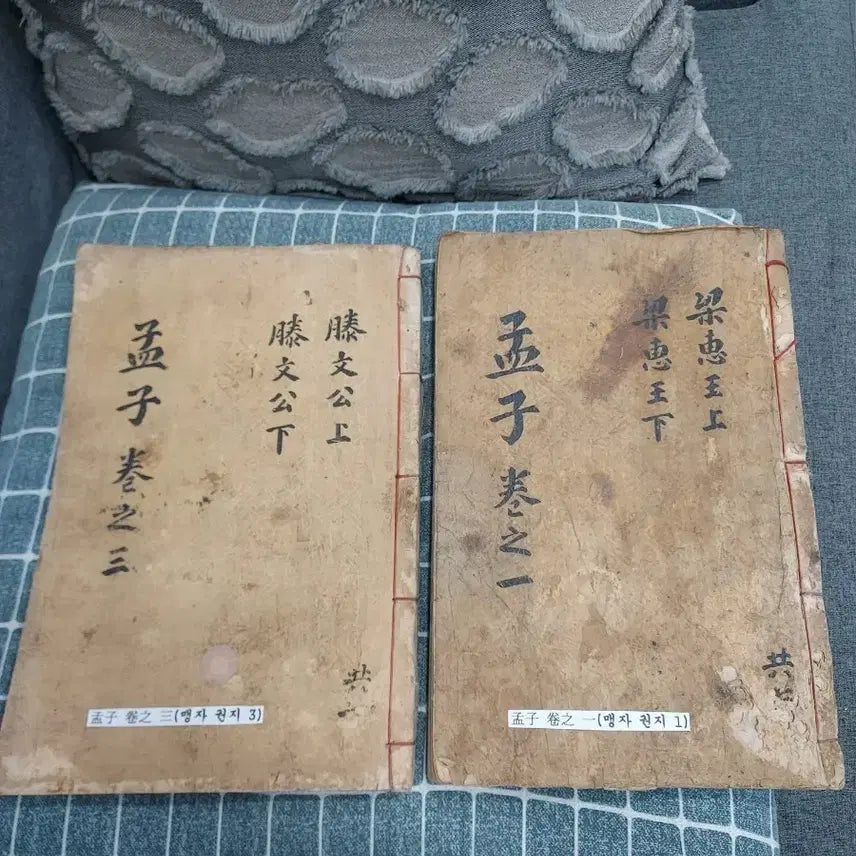 孟子 卷之三
滕文公上
滕文公下
共
孟子 卷之 三(맹자 권지 3)
孟子 卷之一
梁惠王上
梁惠王下
共
孟子 卷之 一(맹자 권지 1)